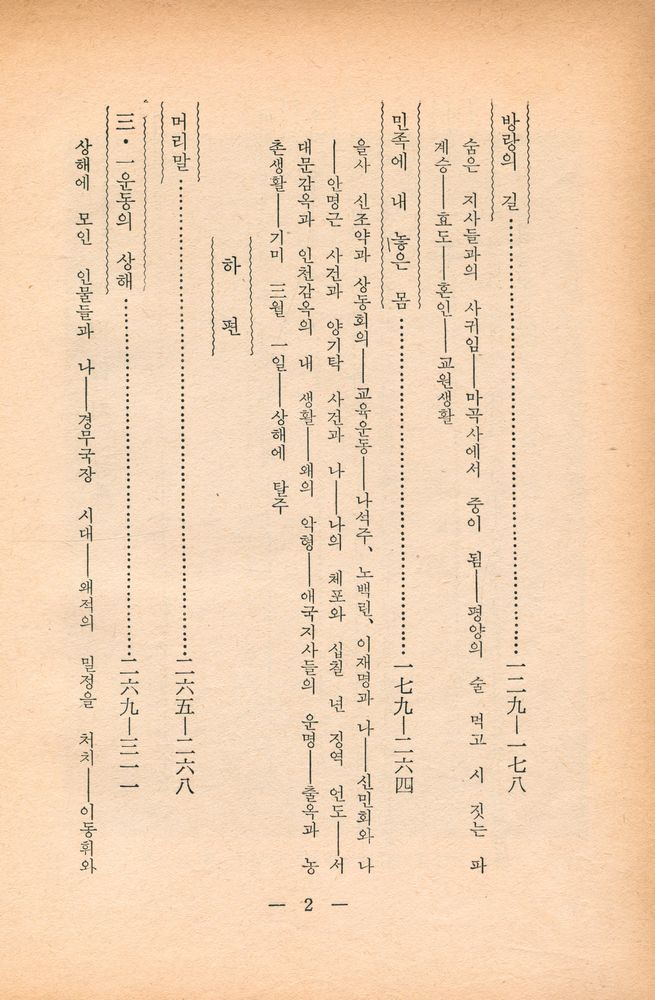 방랑의 길……………………………一二九―一七八
숨은 지사들과의 사귀임――마곡사에서 중이 됨――평양의 술 먹고 시 짓는 파
계승――효도――혼인――교원생활
민족에 내 놓은 몸……………………………一七九―二六四
을사 신조약과 상동회의――교육운동――나석주、노백린、이재명과 나――신민회와 나
――안명근 사건과 양기탁 사건과 나――나의 체포와 십칠 년 징역 언도――서
대문감옥과 인천감옥의 내 생활――왜의 악형――애국지사들의 운명――출옥과 농
촌생활――기미 三월 一일――상해에 탈주
하 편
머리말……………………………二六五―二六八
三・一운동의 상해……………………………二六九―三一一
상해에 모인 인물들과 나――경무국장 시대――왜적의 밀정을 처치――이동휘와
— 2 —